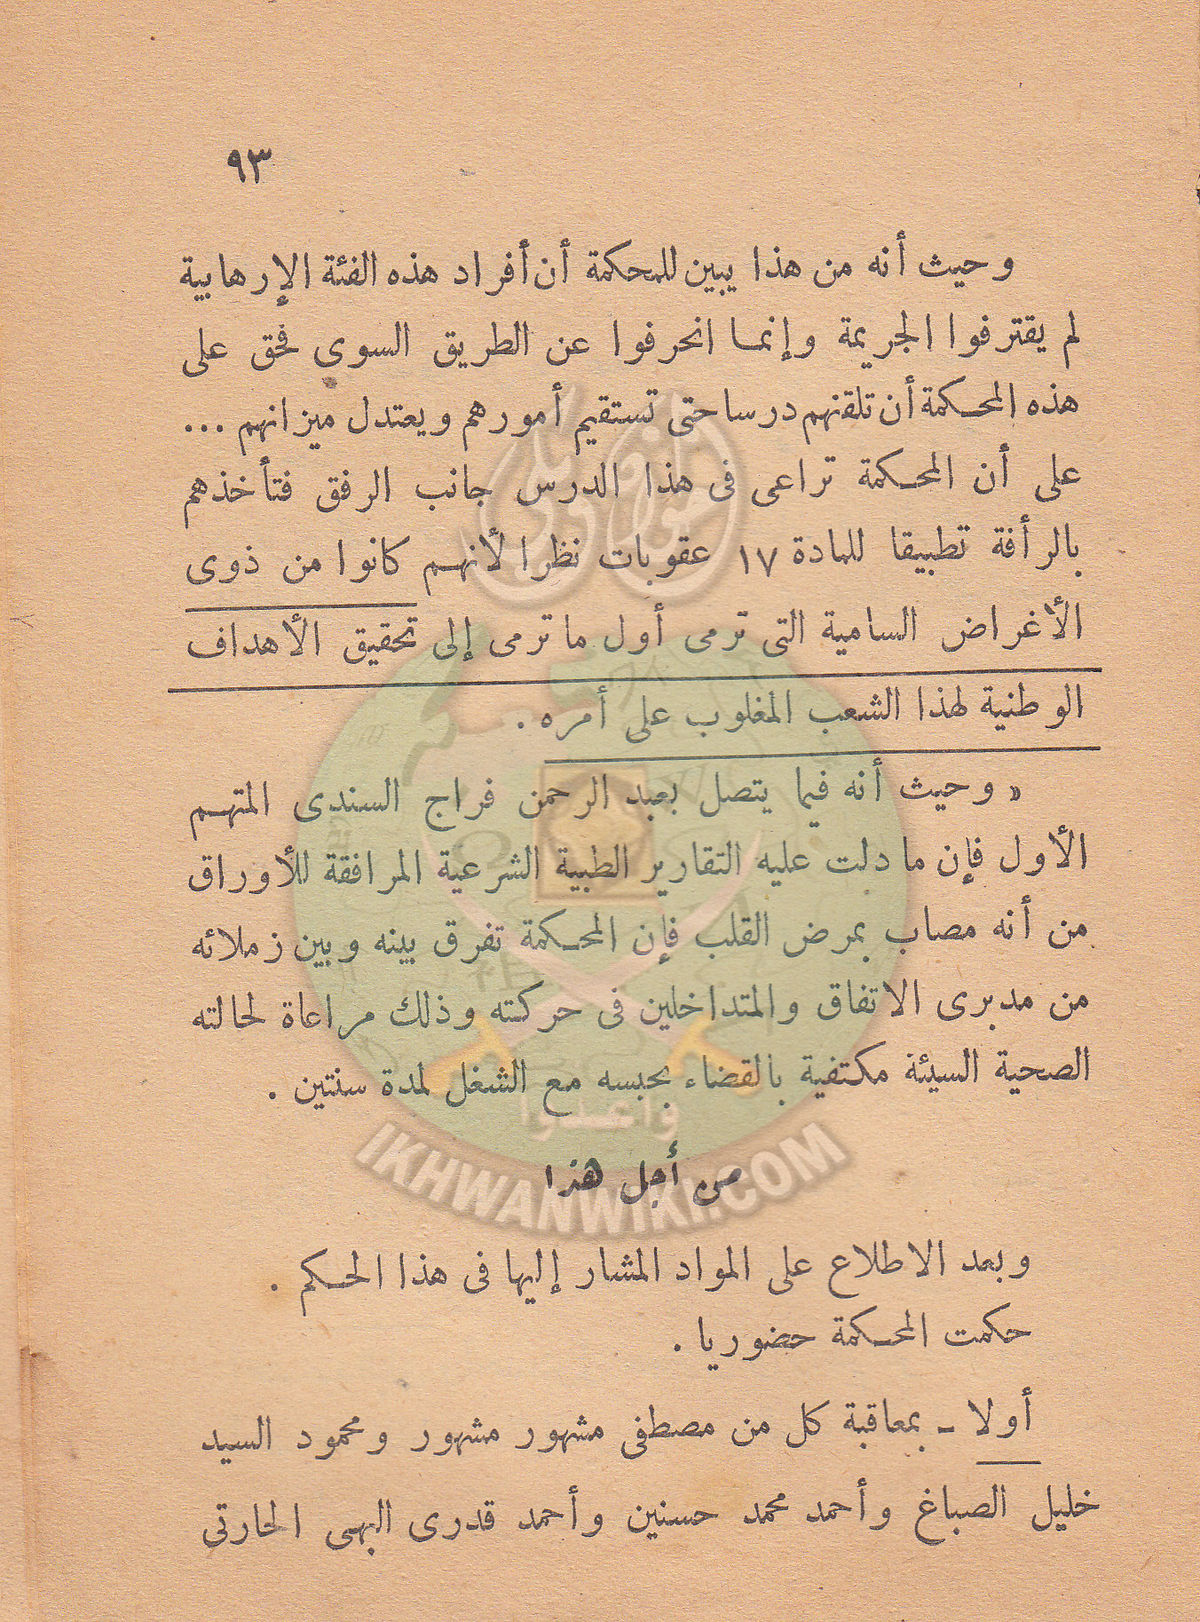 ٩٣
وحيث أنه من هذا يبين للمحكمة أن أفراد هذه الفئة الإرهابية
لم يقترفوا الجريمة وإنما انحرفوا عن الطريق السوى فحق على
هذه المحكمة أن تلقنهم درسا حتى تستقيم أمورهم ويعتدل ميزانهم ...
على أن المحكمة تراعى فى هذا الدرس جانب الرفق فتأخذهم
بالرأفة تطبيقا للمادة ١٧ عقوبات نظرا لأنهم كانوا من ذوى
الأغراض السامية التى ترمى أول ما ترمى إلى تحقيق الأهداف
الوطنية لهذا الشعب المغلوب على أمره .
« وحيث أنه فيما يتصل بعبد الرحمن فراج السندى المتهم
الأول فإن ما دلت عليه التقارير الطبية الشرعية المرافقة للأوراق
من أنه مصاب بمرض القلب فإن المحكمة تفرق بينه وبين زملائه
من مدبرى الاتفاق والمتداخلين فى حركته وذلك مراعاة لحالته
الصحية السيئة مكتفية بالقضاء بحبسه مع الشغل لمدة سنتين .
وأعدوا
IKHWANWIKI.COM
من أجل هذا
وبعد الاطلاع على المواد المشار إليها فى هذا الحكم .
حكمت المحكمة حضوريا .
أولا - بمعاقبة كل من مصطفى مشهور مشهور ومحمود السيد
خليل الصباغ وأحمد محمد حسنين وأحمد قدرى البهى الحارتى